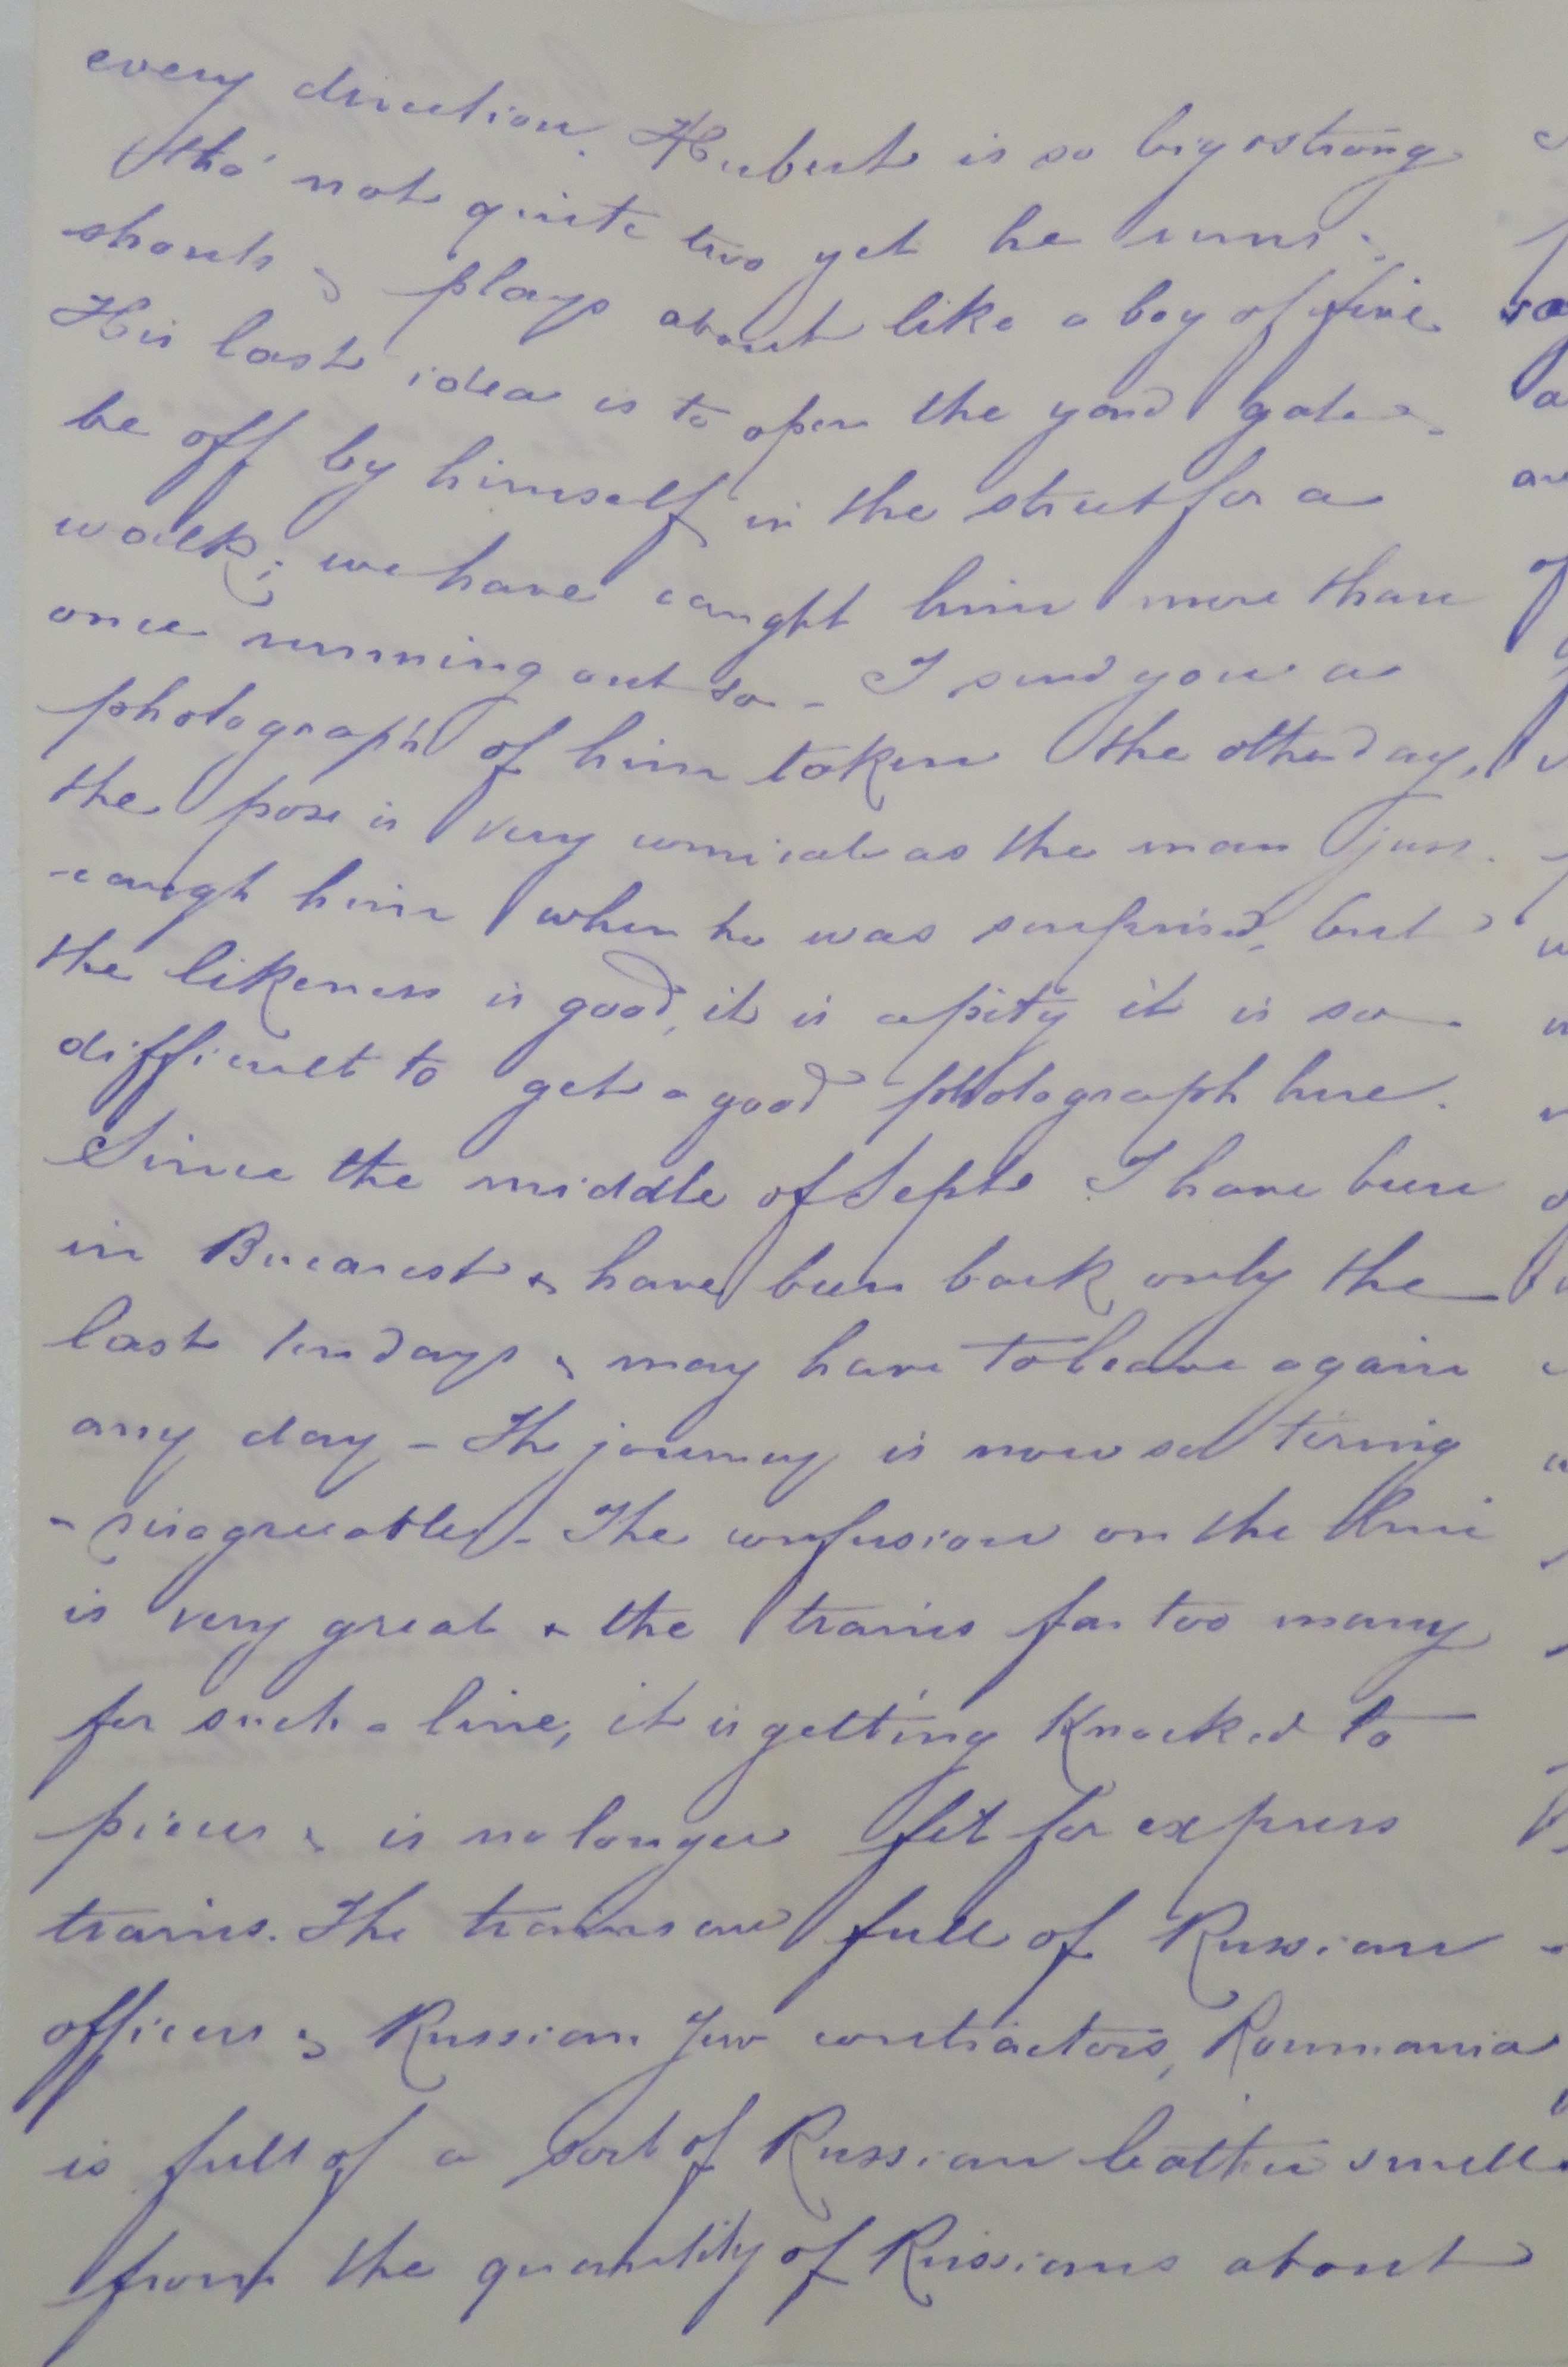 every direction. Hubert is so big & strong
tho' not quite two yet he runs &
shouts & plays about like a boy of five.
His last idea is to open the yard gate &
be off by himself in the street for a
walk; we have caught him more than
once running out so - I send you a
photograph of him taken the other day,
the pose is very comical as the man just
caugh him when he was surprised, but
the likeness is good, it is a pity it is so
difficult to get a good photograph here.
Since the middle of Sept I have been
in Bucarest & have been back only the
last ten days & may have to leave again
any day - The journey is now so tiring
& disagreeable - The confusion on the line
is very great & the trains far too many
for such a line, it is getting knocked to
pieces & is no longer fit for express
trains. The trains are full of Russian
officers & Russian Jew contractors, Roumania
is full of a sort of Russian leather smell
from the quantity of Russians about